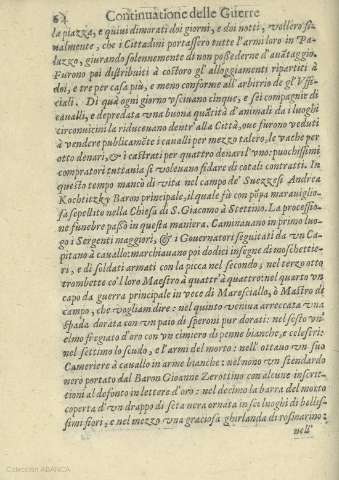 64 Continuatione delle Guerre
la piazza, e quiui dimorati doi giorni, e doi notti, vollero fi-
nalmente, che i Cittadini portassero tutte l'armi loro in Pa-
lazzo, giurando solennemente di non possederne d'auátaggio.
Furono poi distribuiti à costoro gl'alloggiamenti ripartiti à
doi, e tre per casa più, e meno conforme all'arbitrio de gl'Vffi-
ciali. Di quà ogni giorno vsciuano cinque, e sei compagnie di
caualli, e depredata vna buona quátità d'animali da i luoghi
circonuicini la riduceuano dentr'alla Città, oue furono veduti
à vendere publicamẽte i caualli per mezzo talero, le vache per
otto denari, & i castrati per quattro denari l'vno: puochissimi
compratori tuttauia se voleuano fidare di cotali contratti. In
questo tempo mancò di vita nel campo de' Suezzesi Andrea
Kochtiezky Baron principale, il quale fù con põpa marauiglio-
sa sepellito nella Chiesa di S. Giacomo à Stettino. La processio-
ne funebre passò in questa maniera. Caminauano in primo luo-
go i Sergenti maggiori, & i Gouernatori seguitati da vn Ca-
pitano à cauallo: marchiauano poi dodici insegne di moschettie-
ri, e di soldati armati con la picca nel secondo; nel terzo otto
trombette co'l loro Maestro à quattr'à quattro: nel quarto vn
capo da guerra principale in vece di Maresciallo, ò Mastro de
campo, che vogliam dire: nel quinto veniua arreccata vna
spada dorata con vn paio di speroni pur dorati: nel sesto vn'
elmo fregiato d'oro con vn cimiero di penne bianche, e celestri:
nel settimo lo scudo, e l'armi del morto: nell'ottauo vn suo
Cameriere à cauallo in arme bianche: nel nono vn stendardo
nero portato dal Baron Gioanne Zerottino con alcune inscrit-
tioni al defonto in lettere d'oro: nel decimo la barra del morto
coperta d'vn drappo di seta nera ornata in sei luoghi di bellis-
simi fiori, e nel mezzo vna graciosa ghirlanda di rosmarino:
nell'
Colección ABANCA